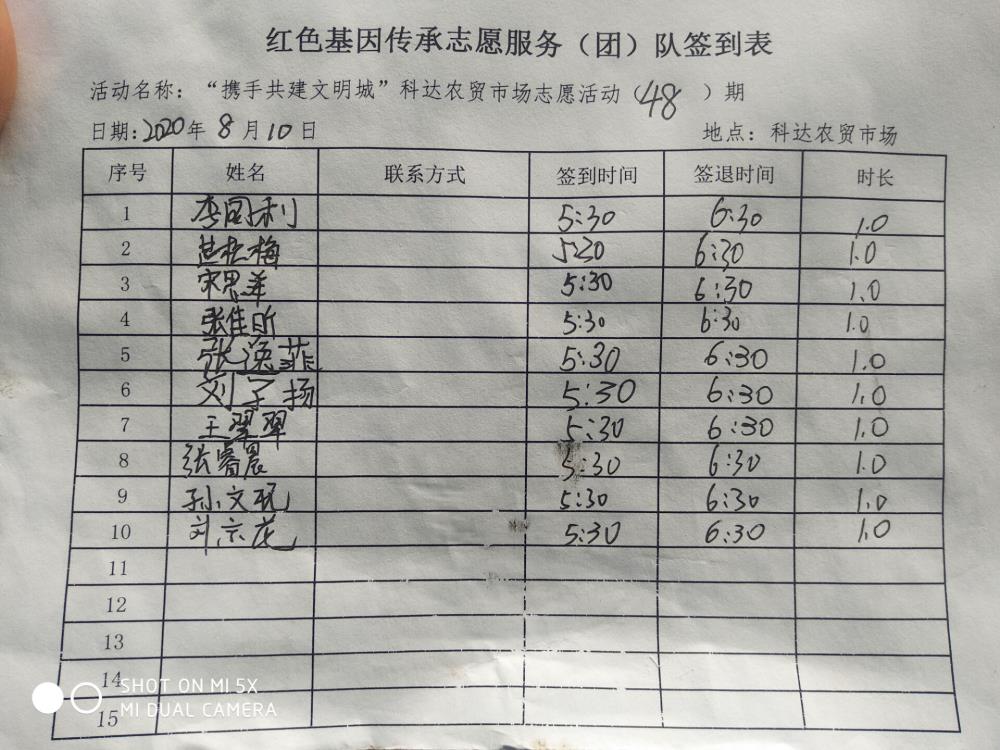 红色基因传承志愿服务（团）队签到表
活动名称：“携手共建文明城”科达农贸市场志愿活动（48）期
日期：2020年8月10日 地点：科达农贸市场
序号 姓名 联系方式 签到时间 签退时间 时长
1 李国利 5:30 6:30 1.0
2 梅 5:30 6:30 1.0
3 宋思 5:30 6:30 1.0
4 张佳昕 5:30 6:30 1.0
5 张逸菲 5:30 6:30 1.0
6 刘子扬 5:30 6:30 1.0
7 王翠翠 5:30 6:30 1.0
8 张睿晨 5:30 6:30 1.0
9 孙文 5:30 6:30 1.0
10 刘京花 5:30 6:30 1.0
11
12
13
14
15
SHOT ON MI 5X
MI DUAL CAMERA